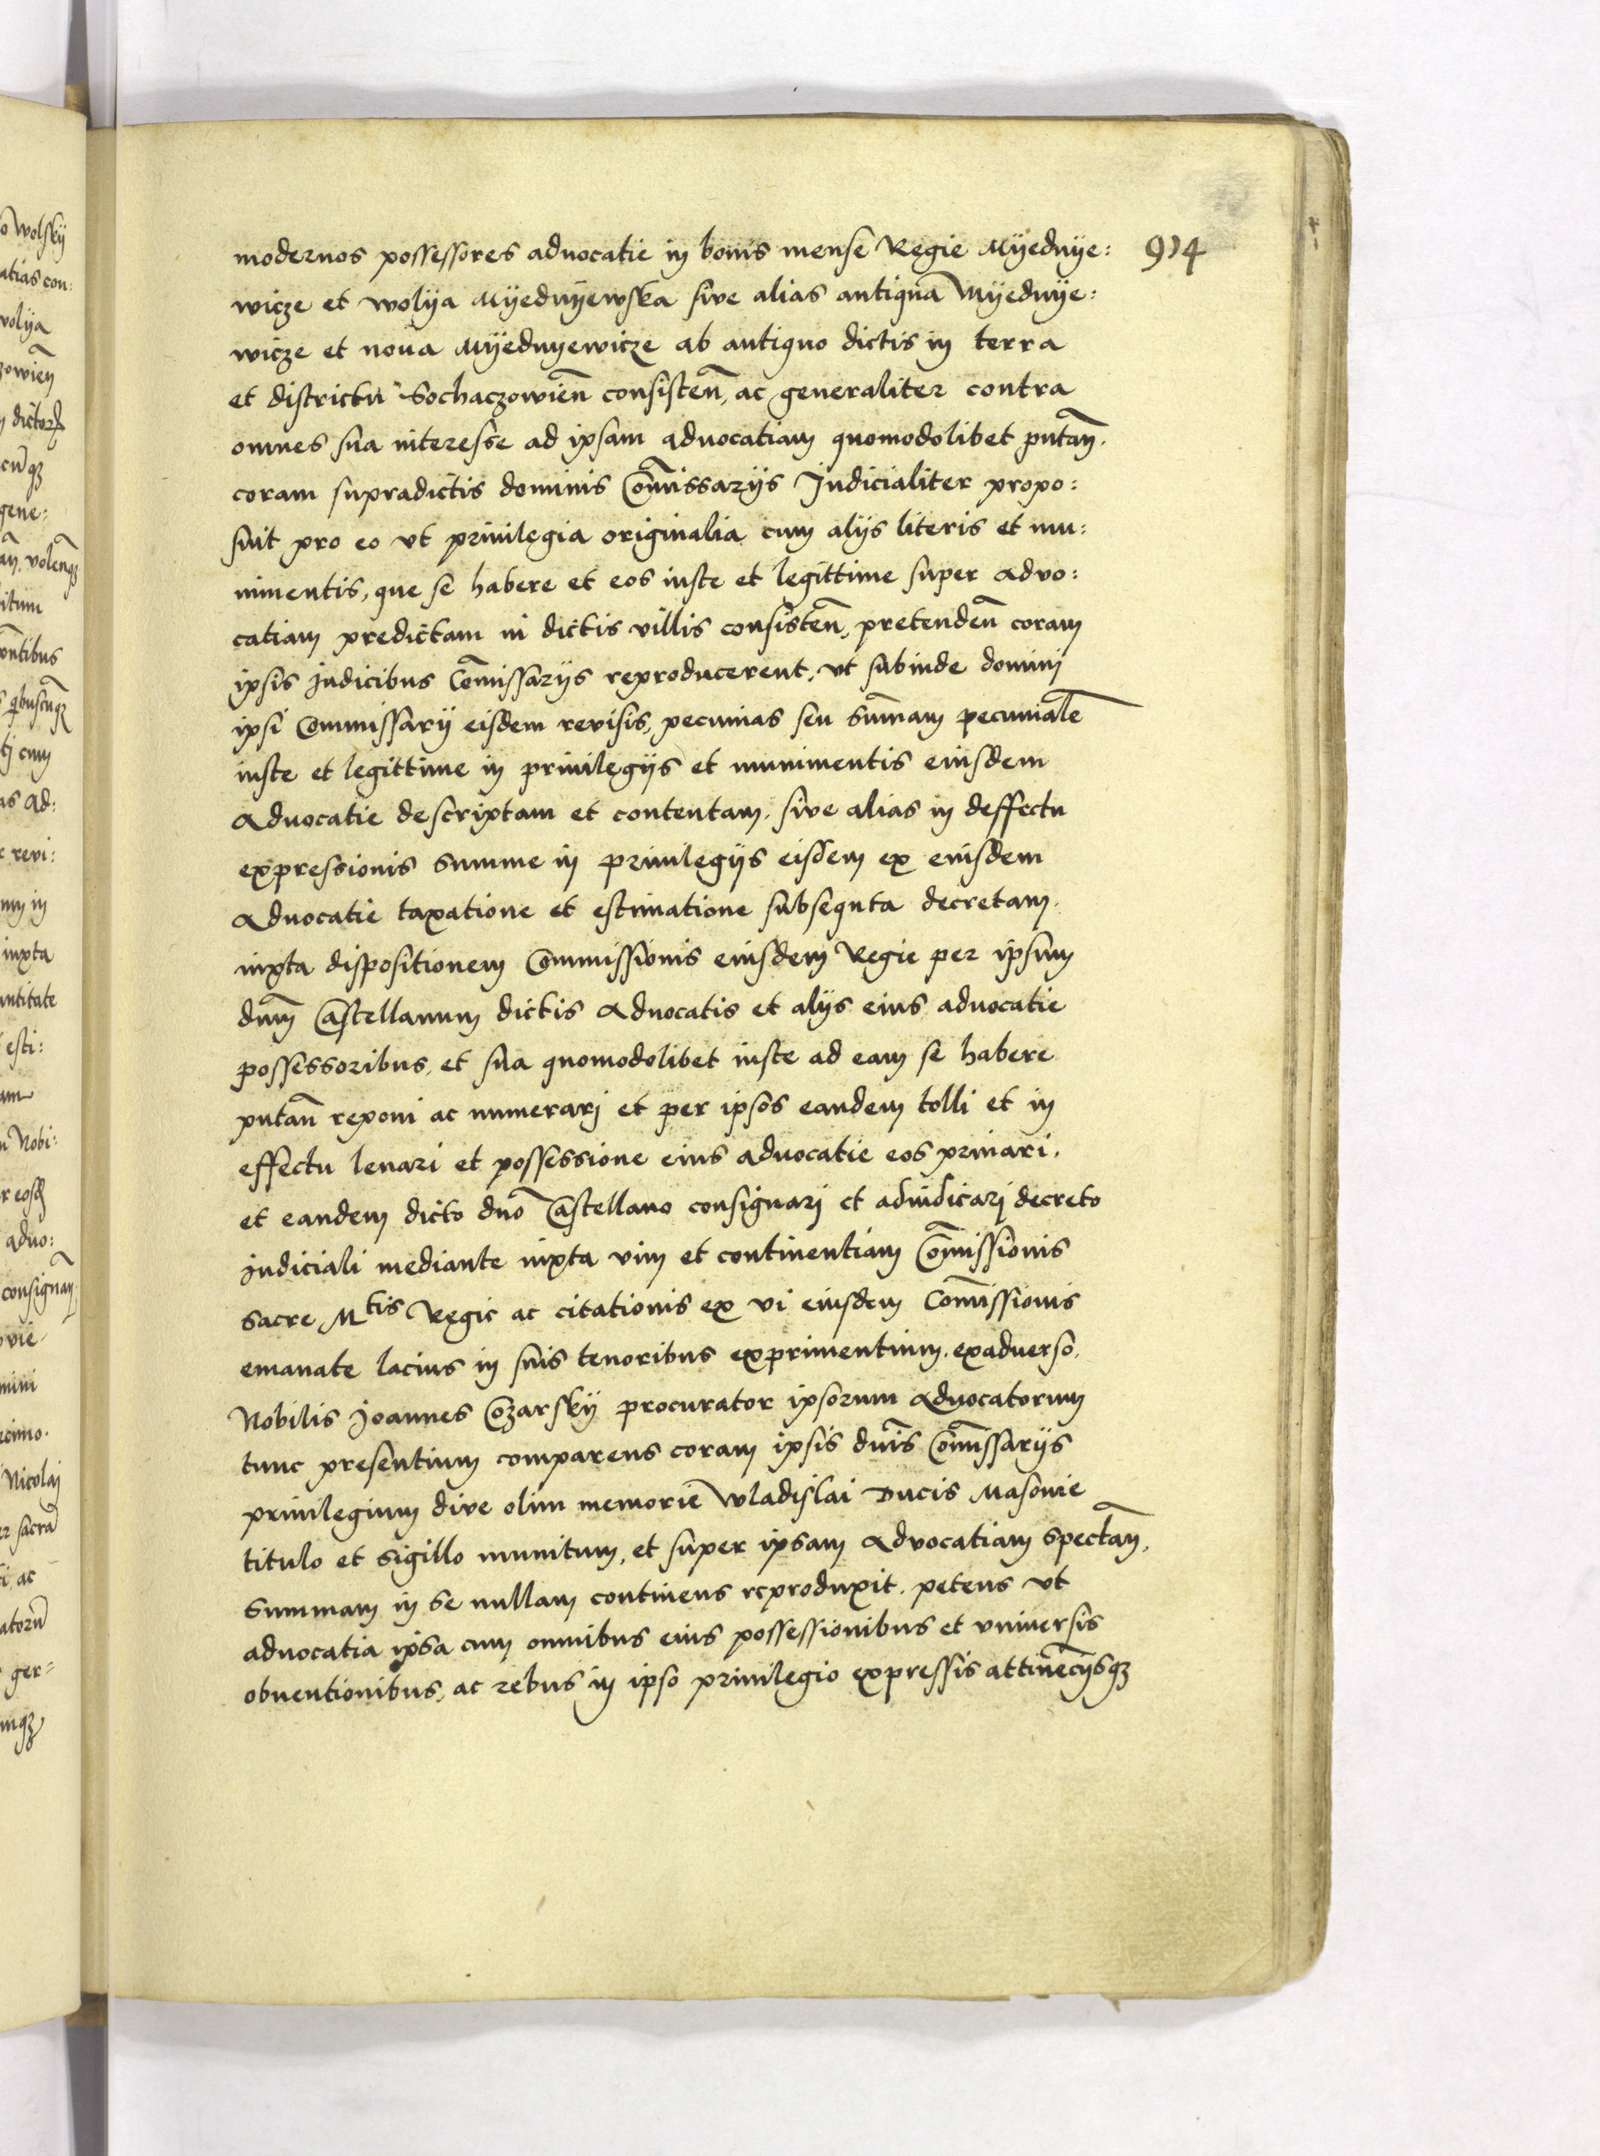 modernos possessores aduocatie in bonis mense Regie Myednye: 914
wicze et wolya Myednyewska sive alias antiqua Myednye:
wicze et noua Myednyewicze ab antiquo dictis in terra
et districtu Sochaczowien̄ consisten̄, ac generaliter contra
omnes sua interesse ad ipsam aduocatiam quomodolibet putan̄.
coram supradictis dominis Com̄issarijs Judicialiter propo:
suit pro eo vt priuilegia originalia cum alijs literis et mu:
nimentis, que se habere et eos iuste et legittime super advo:
catiam predictam in dictis villis consisten̄, pretenden̄ coram
ipsis Judicibus Com̄issarijs reproducerent, vt subinde domini
ipsi Commissarij eisdem revisis, pecunias seu sum̄am pecuniale̅
iuste et legittime in priuilegijs et munimentis eiusdem
Aduocatie descriptam et contentam, sive alias in deffectu
expressionis summe in priuilegijs eisdem ex eiusdem
Aduocatie taxatione et estimatione subsequta decretam.
iuxta dispositionem Commissionis eiusdem Regie per ipsum
dn̄m Castellanum dictis Aduocatis et alijs eius aduocatie
possessoribus, et sua quomodolibet iuste ad eam se habere
putan̄ reponi ac numerarj et per ipsos eandem tolli et in
effectu leuari et possessione eius aduocatie eos priuari.
et eandem dicto dn̄o Castellano consignarj et adiudicarj decreto
Judiciali mediante iuxta vim et continentiam Com̄issionis
sacre Mtis Regie ac citationis ex vi eiusdem Com̄issionis
emanate lacius in suis tenoribus exprimentium. exaduerso.
Nobilis Joannes Cozarsky procurator ipsorum Aduocatorum
tunc presentium comparens coram ipsis dn̄is Com̄issarijs
priuilegium dive olim memorie Wladislai Ducis Masouie
titulo et sigillo munitum, et super ipsam Advocatiam spectan̄,
summam in se nullam continens reproduxit. petens vt
aduocatia ipsa cum omnibus eius possessionibus et vniuersis
obuentionibus, ac rebus in ipso priuilegio expressis attine̅cijsqꝫ